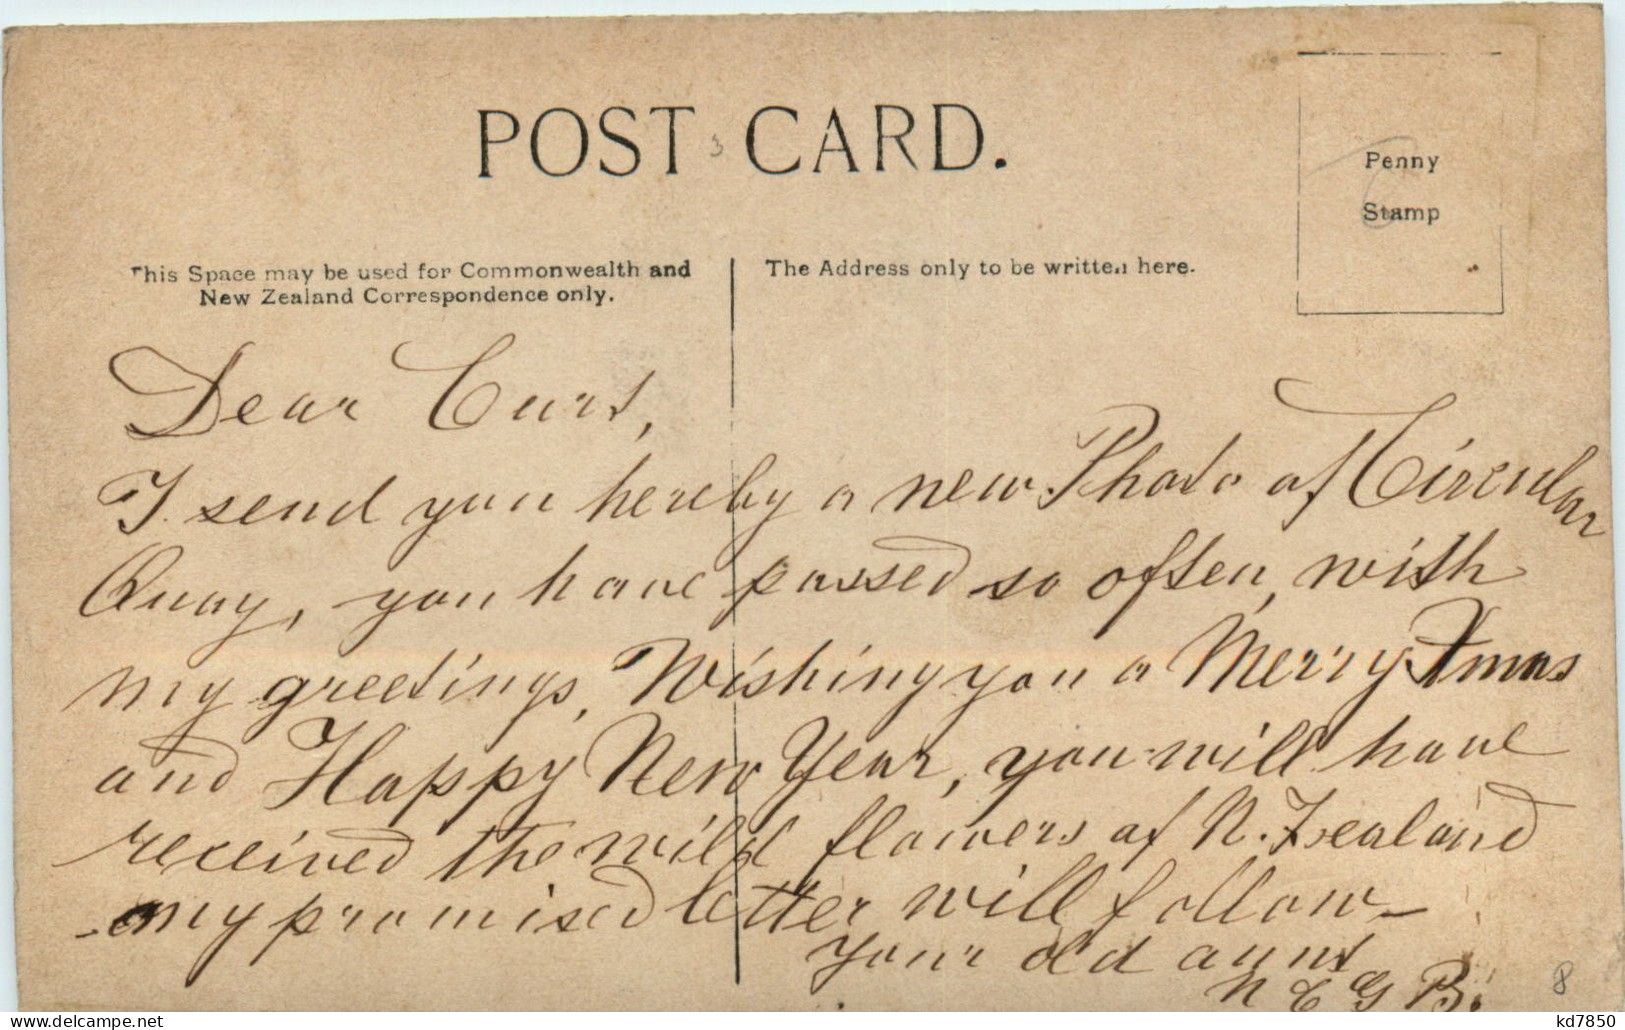 POST CARD.
Penny
Stamp
This Space may be used for Commonwealth and
New Zealand Correspondence only.
The Address only to be written here.
Dear Curt,
I send you hereby a new Photo of Circular
Quay, you have passed so often, with
my greetings, Wishing you a Merry Xmas
and Happy New Year, you will have
received the wild flowers of N. Zealand
my promised letter will follow —
Your old aunt
N E G B.
8
kd7850
www.delcampe.net